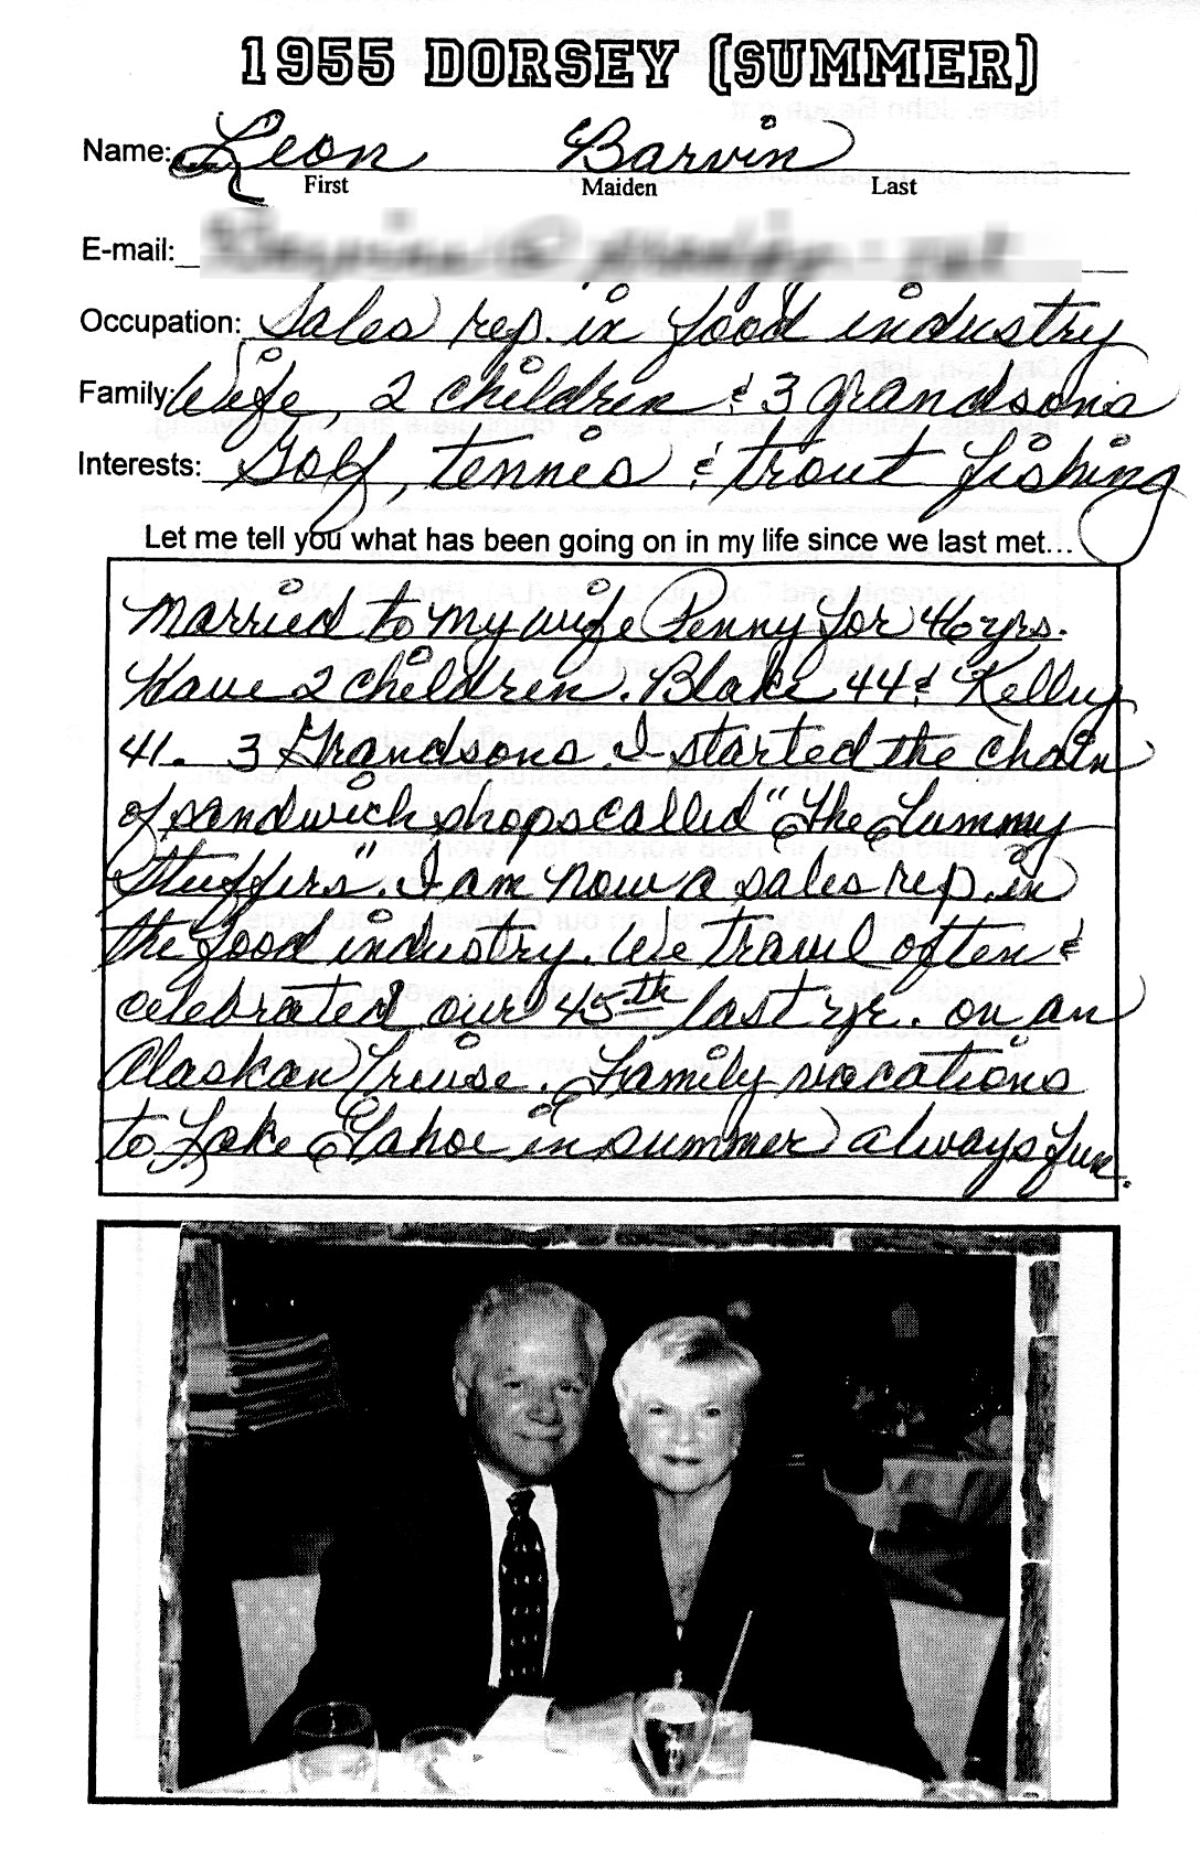 1955 DORSEY (SUMMER)
Name: Leon Barvin
First Maiden Last
E-mail:
Occupation: Sales rep. in food industry
Family: Wife, 2 children & 3 grandsons
Interests: Golf, tennis & trout fishing
Let me tell you what has been going on in my life since we last met...
Married to my wife Penny for 46 yrs.
Have 2 children. Blake 44 & Kelley
41. 3 Grandsons. I started the chain
of sandwich shops called "The Tummy
Stuffers". I am now a sales rep. in
the food industry. We travel often &
celebrated our 45th last yr. on an
Alaskan Cruise. Family vacations
to Lake Tahoe in summer always fun.